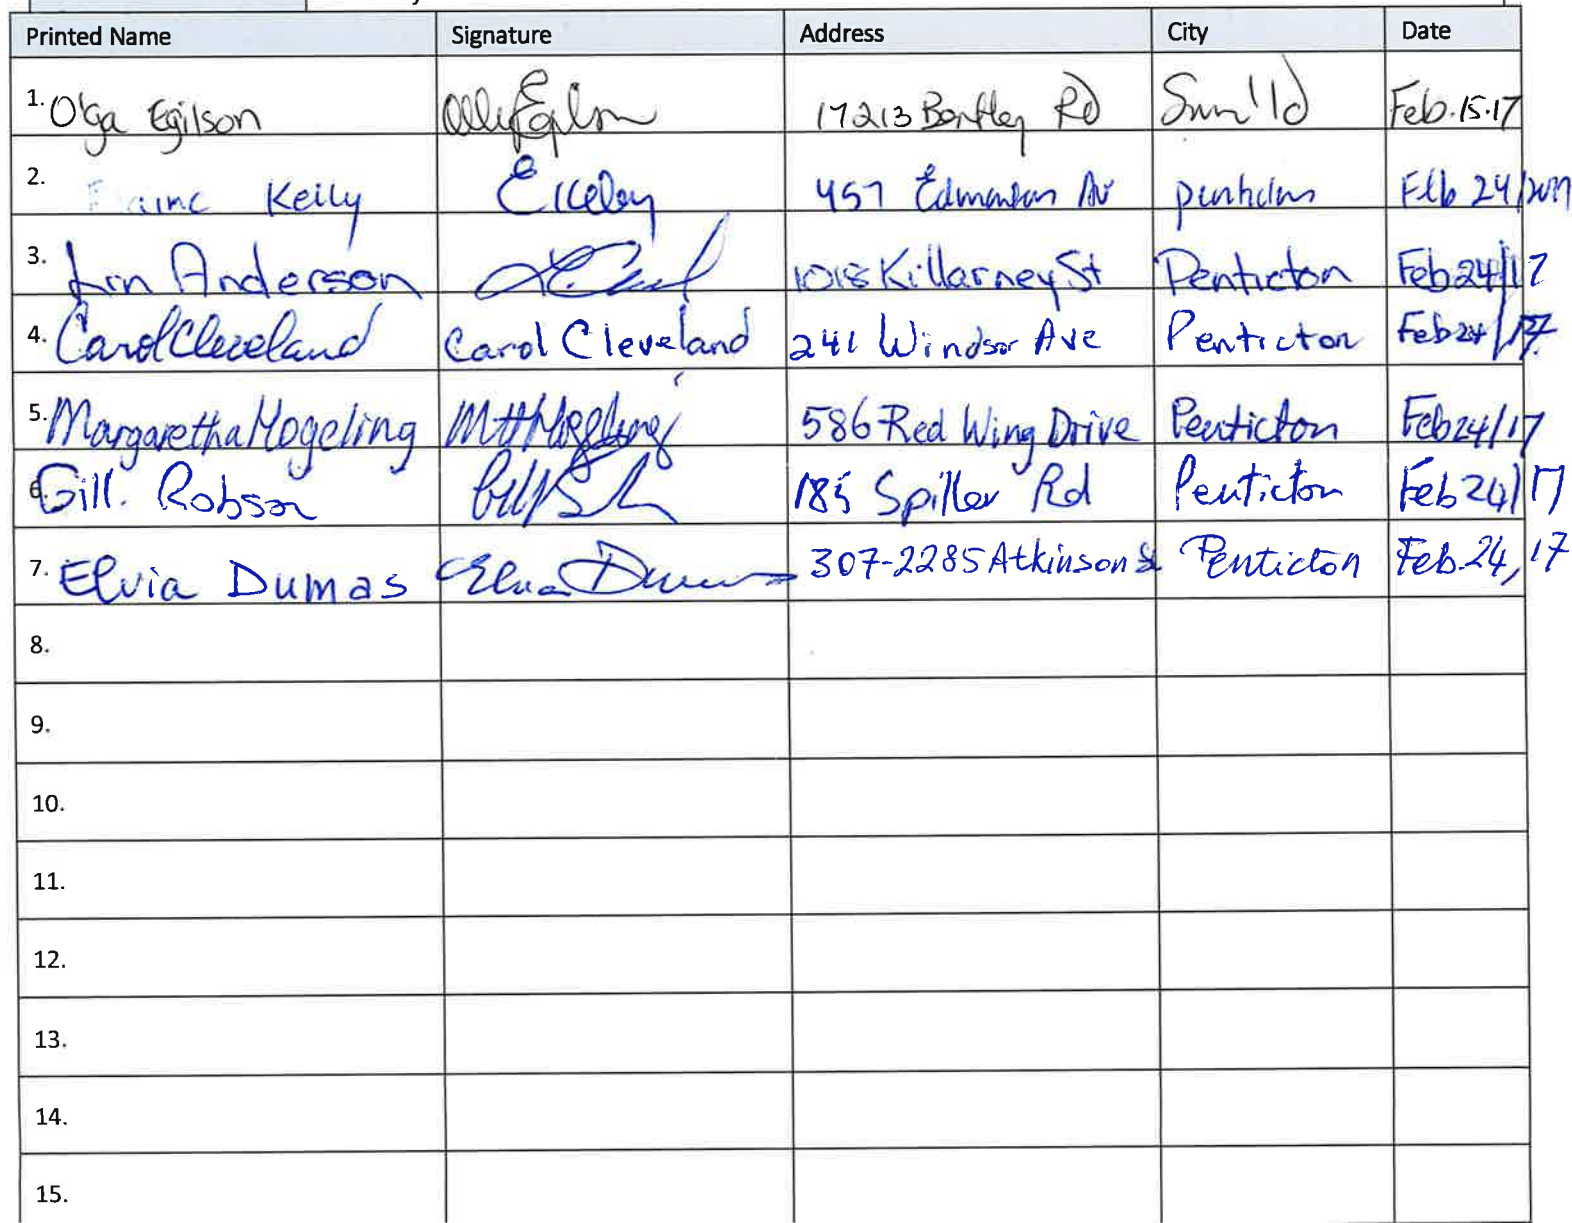 Printed Name Signature Address City Date
1. Olga Egilson 17213 Bentley Rd Sum'ld Feb.15.17
2. Elaine Kelly EKelly 457 Edmonton Av Feb 24/2017
3. Lin Anderson 1018 Killarney St Penticton Feb 24/17
4. Carol Cleveland Carol Cleveland 241 Windsor Ave Penticton Feb 24/17
5. Margaretha Hogeling MttHogeling 586 Red Wing Drive Penticton Feb 24/17
6. Gill. Robson 185 Spiller Rd Penticton Feb 24/17
7. Elvia Dumas Elvia Dumas 307-2285 Atkinson St Penticton Feb.24, 17
8.
9.
10.
11.
12.
13.
14.
15.